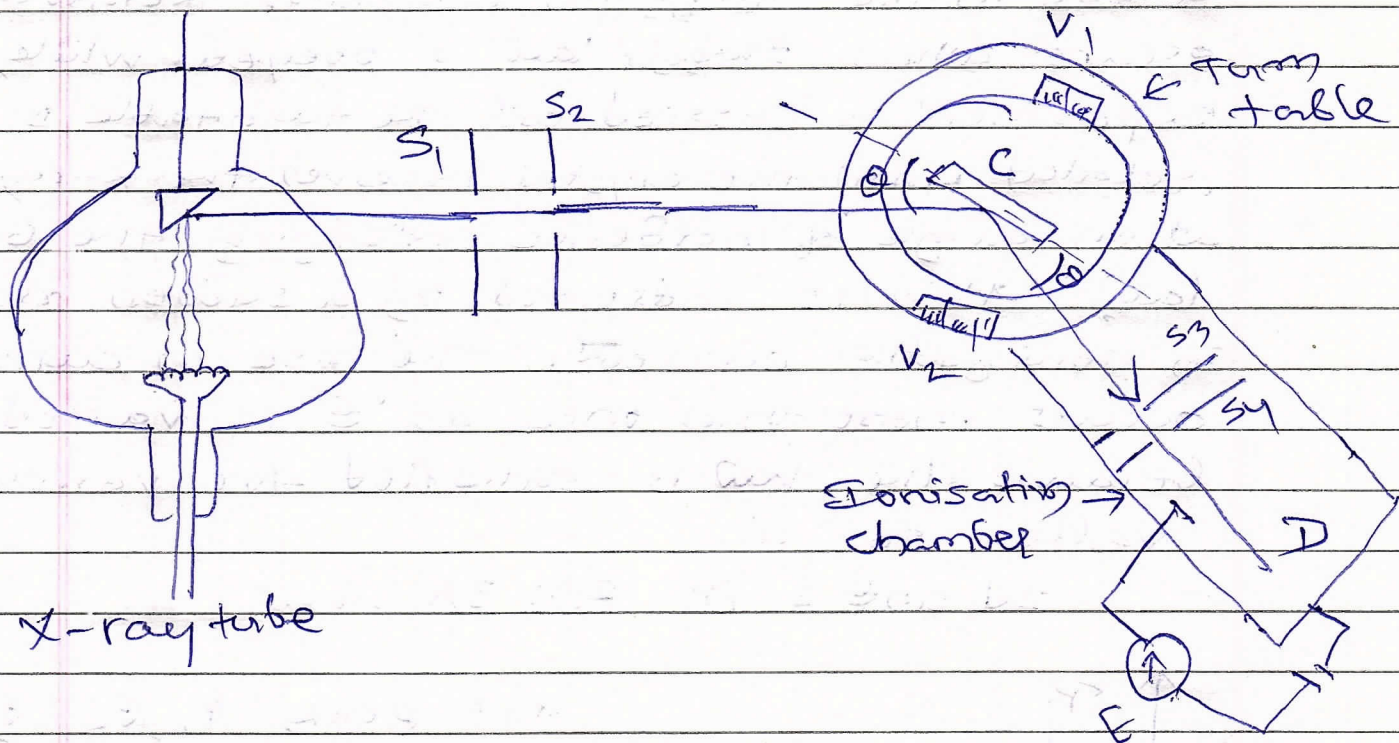 V1
Turn
table
S1
S2
C
θ
θ
V2
S3
S4
Ionisation
chamber
D
X-ray tube
E